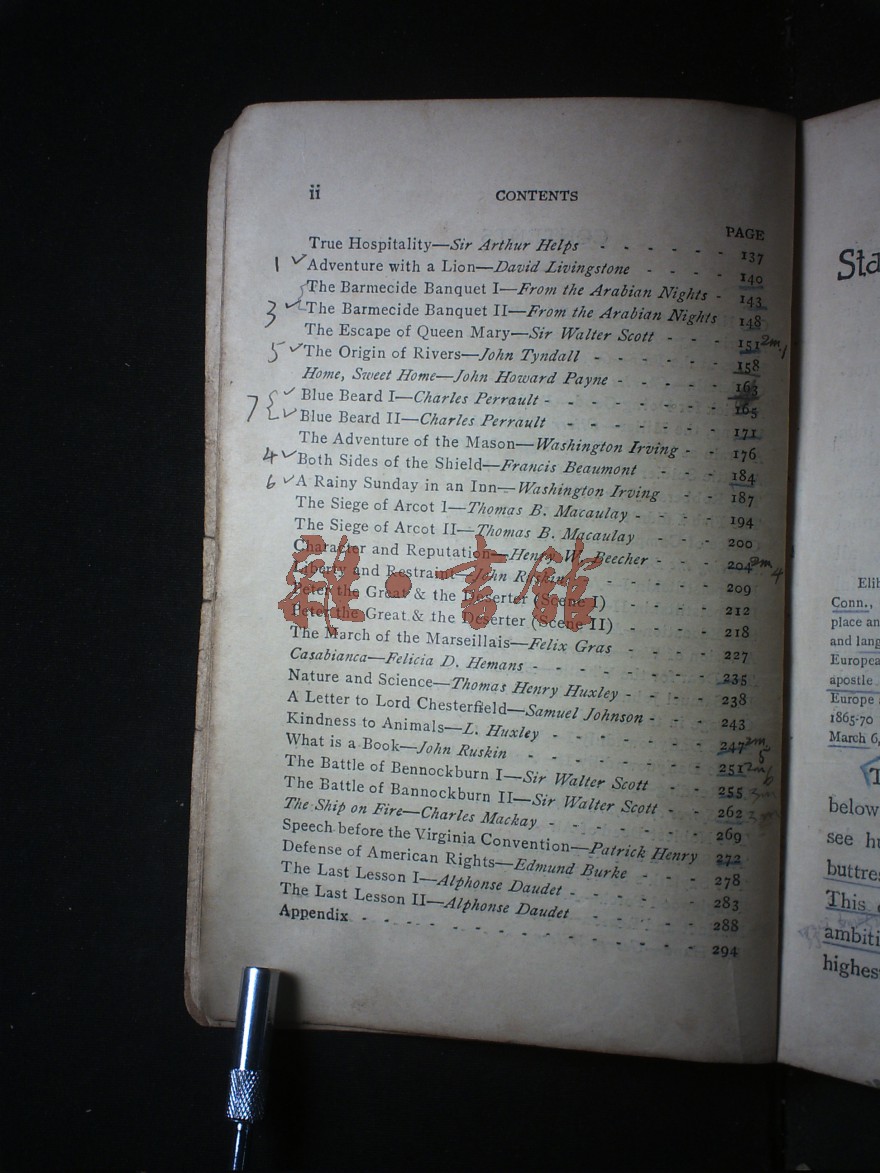 ii CONTENTS
PAGE
True Hospitality—Sir Arthur Helps - - - - - - 137
1 ✓ Adventure with a Lion—David Livingstone - - - - 140
The Barmecide Banquet I—From the Arabian Nights - 143
3 ✓ The Barmecide Banquet II—From the Arabian Nights 148
The Escape of Queen Mary—Sir Walter Scott - - - 151 2m.1
5 ✓ The Origin of Rivers—John Tyndall - - - - - - 158
Home, Sweet Home—John Howard Payne - - - - - 163
7 { ✓ Blue Beard I—Charles Perrault - - - - - - - 165
✓ Blue Beard II—Charles Perrault - - - - - - - 171
The Adventure of the Mason—Washington Irving - - 176
4 ✓ Both Sides of the Shield—Francis Beaumont - - - 184
6 ✓ A Rainy Sunday in an Inn—Washington Irving - - 187
The Siege of Arcot I—Thomas B. Macaulay - - - - 194
The Siege of Arcot II—Thomas B. Macaulay - - - 200
Character and Reputation—Henry W. Beecher - - - 204 2m 4
Liberty and Restraint—John Ruskin - - - - - 209
Peter the Great & the Deserter (Scene I) - - - - 212
Peter the Great & the Deserter (Scene II) - - - - 218
The March of the Marseillais—Felix Gras - - - - 227
Casabianca—Felicia D. Hemans - - - - - - - 235
Nature and Science—Thomas Henry Huxley - - - - 238
A Letter to Lord Chesterfield—Samuel Johnson - - - 243
Kindness to Animals—L. Huxley - - - - - - - 247 2m. 5
What is a Book—John Ruskin - - - - - - - 251 2m 6
The Battle of Bennockburn I—Sir Walter Scott - - 255 3m
The Battle of Bannockburn II—Sir Walter Scott - - 262 3m
The Ship on Fire—Charles Mackay - - - - - - 269
Speech before the Virginia Convention—Patrick Henry 272
Defense of American Rights—Edmund Burke - - - 278
The Last Lesson I—Alphonse Daudet - - - - - 283
The Last Lesson II—Alphonse Daudet - - - - - 288
Appendix - - - - - - - - - - - - - 294
雜·书館
Sta
Elih
Conn.,
place an
and lang
Europea
apostle
Europe
1865-70
March 6,
T
below
see hu
buttres
This
ambiti
highes